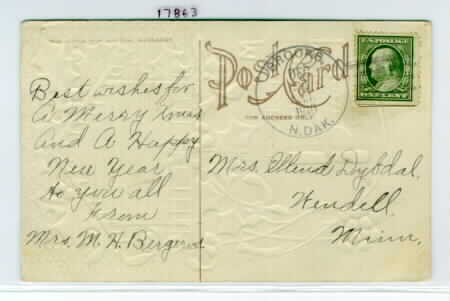 17863
Post Card
BROOKS
N. DAK.
U.S. POSTAGE
ONE CENT
FOR ADDRESS ONLY
Best wishes for
A Merry Xmas
And A Happy
New Year
to you all
From
Mrs. M. H. Bergerud
Mrs. Ellend Dybdal,
Wendell,
Minn,